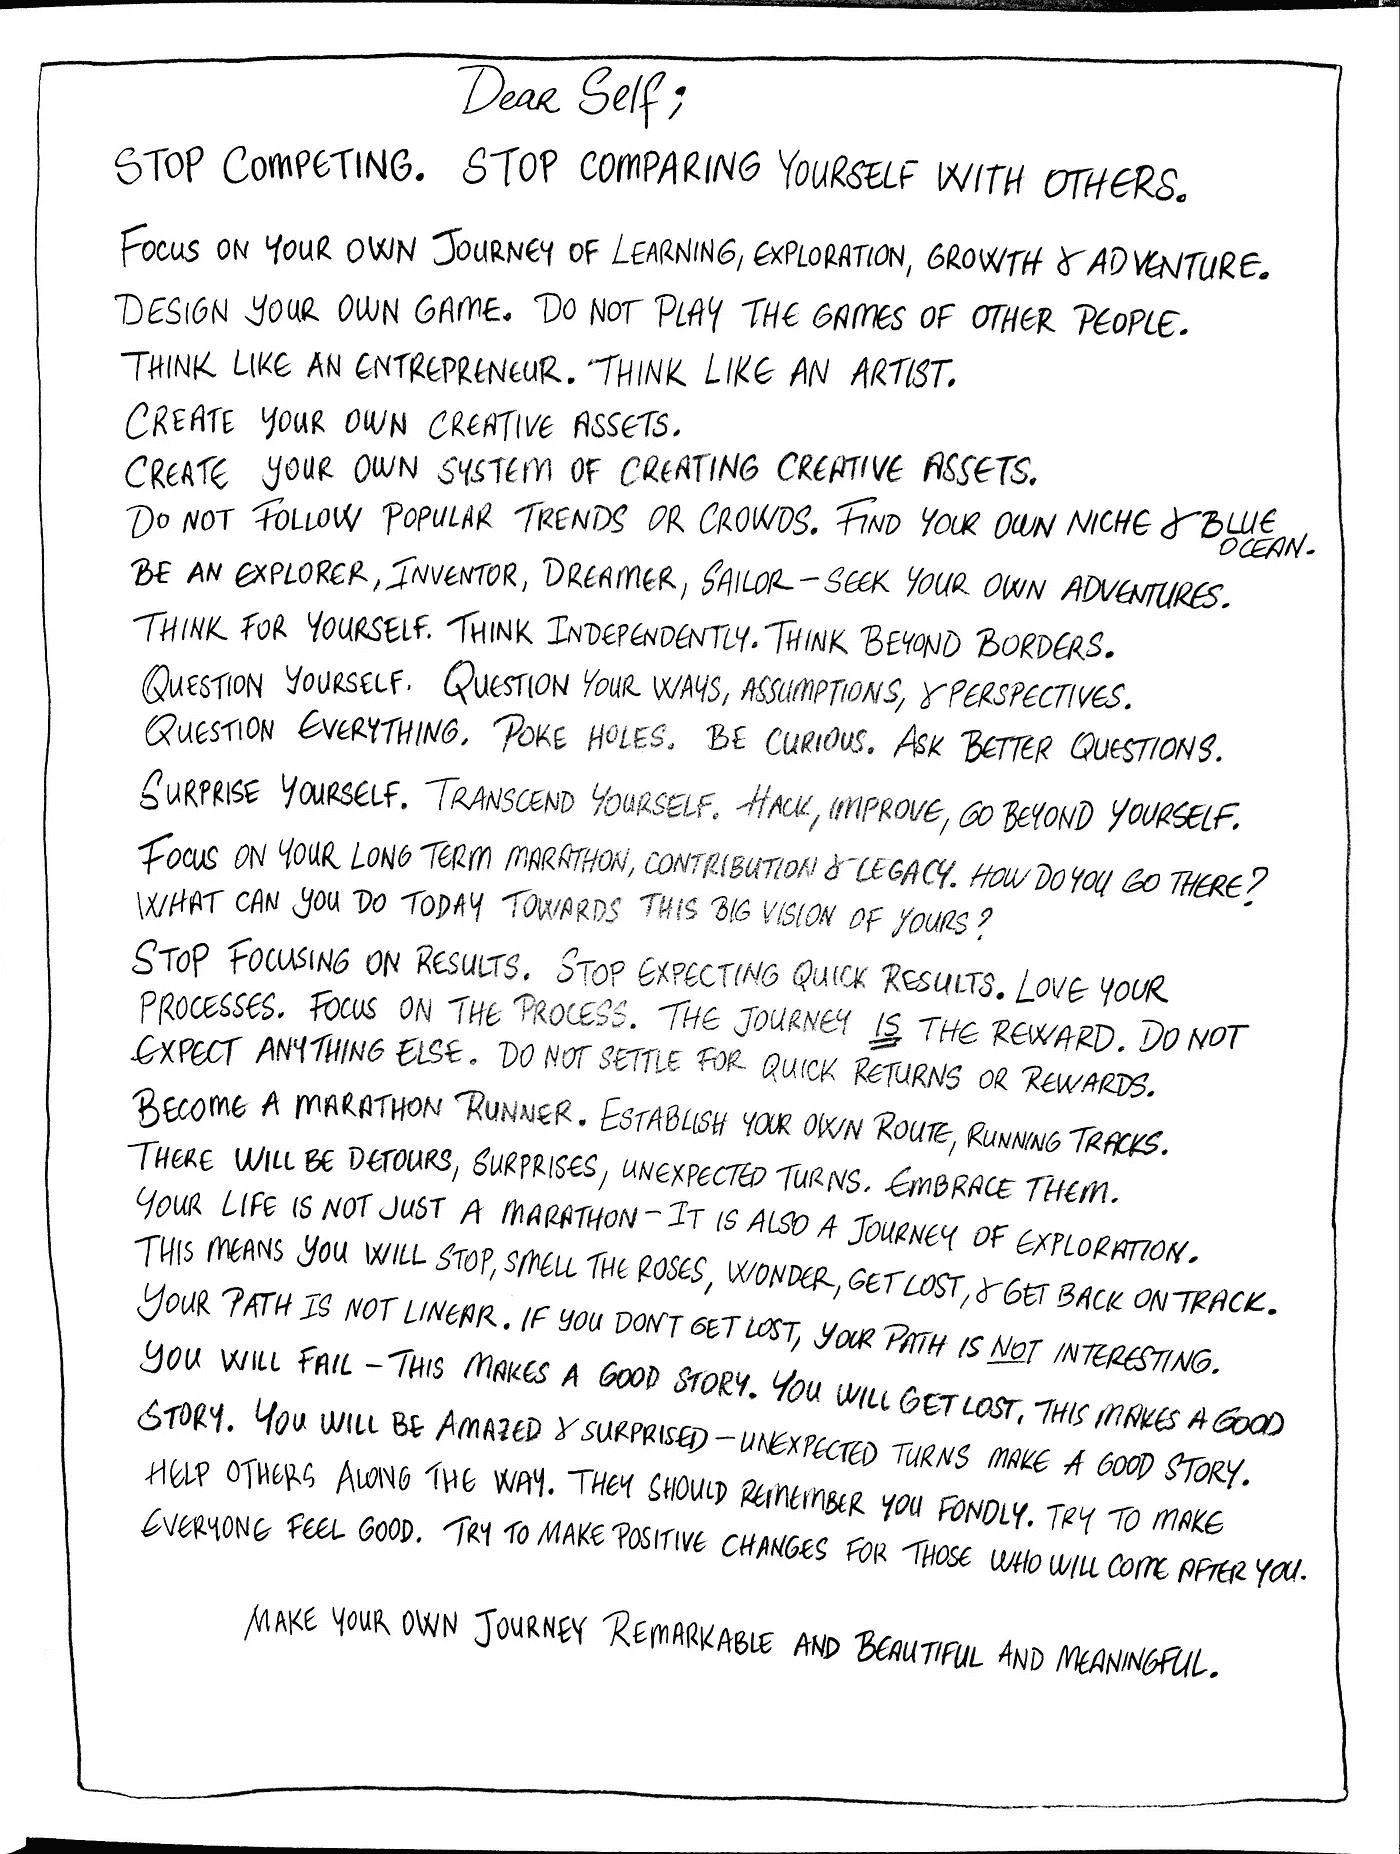 Dear Self;
STOP COMPETING. STOP COMPARING YOURSELF WITH OTHERS.
FOCUS ON YOUR OWN JOURNEY OF LEARNING, EXPLORATION, GROWTH & ADVENTURE.
DESIGN YOUR OWN GAME. DO NOT PLAY THE GAMES OF OTHER PEOPLE.
THINK LIKE AN ENTREPRENEUR. THINK LIKE AN ARTIST.
CREATE YOUR OWN CREATIVE ASSETS.
CREATE YOUR OWN SYSTEM OF CREATING CREATIVE ASSETS.
DO NOT FOLLOW POPULAR TRENDS OR CROWDS. FIND YOUR OWN NICHE & BLUE
OCEAN.
BE AN EXPLORER, INVENTOR, DREAMER, SAILOR – SEEK YOUR OWN ADVENTURES.
THINK FOR YOURSELF. THINK INDEPENDENTLY. THINK BEYOND BORDERS.
QUESTION YOURSELF. QUESTION YOUR WAYS, ASSUMPTIONS, & PERSPECTIVES.
QUESTION EVERYTHING. POKE HOLES. BE CURIOUS. ASK BETTER QUESTIONS.
SURPRISE YOURSELF. TRANSCEND YOURSELF. HACK, IMPROVE, GO BEYOND YOURSELF.
FOCUS ON YOUR LONG TERM MARATHON, CONTRIBUTION & LEGACY. HOW DO YOU GO THERE?
WHAT CAN YOU DO TODAY TOWARDS THIS BIG VISION OF YOURS?
STOP FOCUSING ON RESULTS. STOP EXPECTING QUICK RESULTS. LOVE YOUR
PROCESSES. FOCUS ON THE PROCESS. THE JOURNEY IS THE REWARD. DO NOT
EXPECT ANYTHING ELSE. DO NOT SETTLE FOR QUICK RETURNS OR REWARDS.
BECOME A MARATHON RUNNER. ESTABLISH YOUR OWN ROUTE, RUNNING TRACKS.
THERE WILL BE DETOURS, SURPRISES, UNEXPECTED TURNS. EMBRACE THEM.
YOUR LIFE IS NOT JUST A MARATHON – IT IS ALSO A JOURNEY OF EXPLORATION.
THIS MEANS YOU WILL STOP, SMELL THE ROSES, WONDER, GET LOST, & GET BACK ON TRACK.
YOUR PATH IS NOT LINEAR. IF YOU DON'T GET LOST, YOUR PATH IS NOT INTERESTING.
YOU WILL FAIL – THIS MAKES A GOOD STORY. YOU WILL GET LOST. THIS MAKES A GOOD
STORY. YOU WILL BE AMAZED & SURPRISED – UNEXPECTED TURNS MAKE A GOOD STORY.
HELP OTHERS ALONG THE WAY. THEY SHOULD REMEMBER YOU FONDLY. TRY TO MAKE
EVERYONE FEEL GOOD. TRY TO MAKE POSITIVE CHANGES FOR THOSE WHO WILL COME AFTER YOU.
MAKE YOUR OWN JOURNEY REMARKABLE AND BEAUTIFUL AND MEANINGFUL.